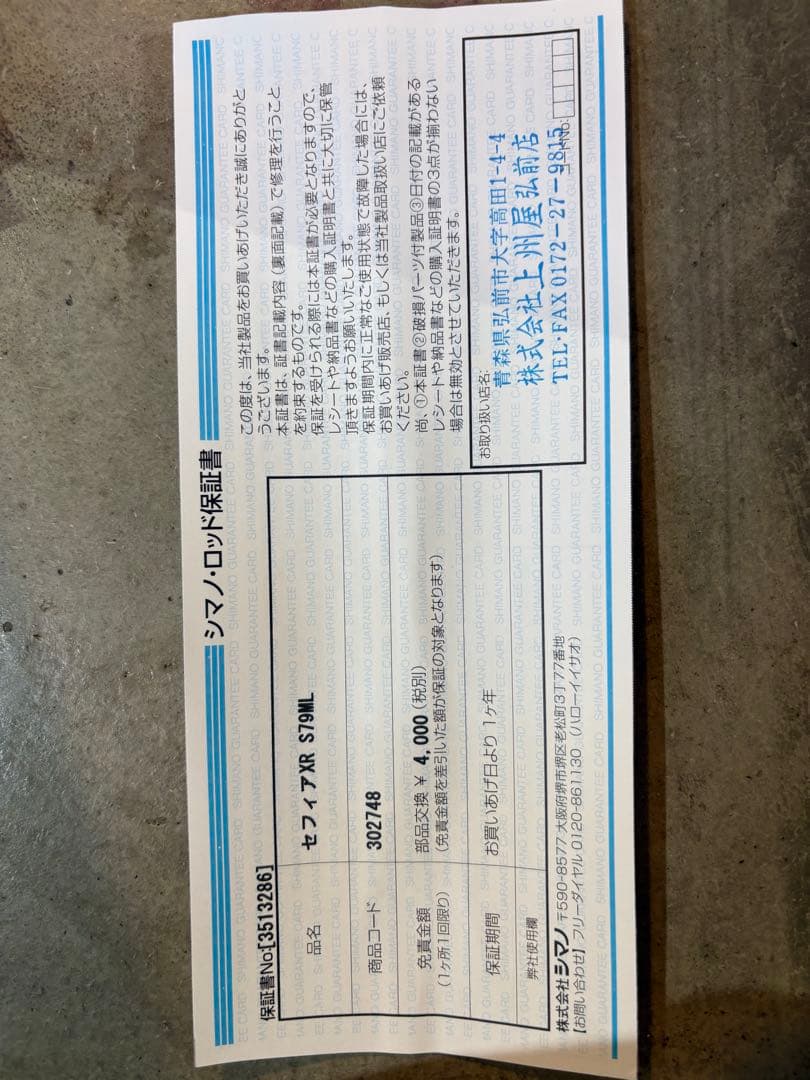 シマノ・ロッド保証書
保証書No[3513286]
品名 セフィアXR S79ML
商品コード 302748
免責金額 部品交換 ¥ 4,000 (税別)
(1ヶ所1回限り) (免責金額を差引いた額が保証の対象となります)
保証期間 お買いあげ日より 1ヶ年
弊社使用欄
この度は、当社製品をお買いあげいただき誠にありがと
うございます。
本証書は、証書記載内容(裏面記載)で修理を行うこと
を約束するものです。
保証を受けられる際には本証書が必要となりますので、
レシートや納品書などの購入証明書と共に大切に保管
頂きますようお願いいたします。
保証期間内に正常なご使用状態で故障した場合には、
お買いあげ販売店、もしくは当社製品取扱い店にご依頼
ください。
尚、①本証書②破損パーツ付製品③日付の記載がある
レシートや納品書などの購入証明書の3点が揃わない
場合は無効とさせていただきます。
お取り扱い店名:
青森県弘前市大字高田1-4-4
株式会社上州屋弘前店
TEL・FAX0172-27-9815
コードNo:
株式会社シマノ 〒590-8577 大阪府堺市堺区老松町3丁77番地
【お問い合わせ】フリーダイヤル 0120-861130 (ハローイイサオ)
SHIMANO GUARANTEE CARD